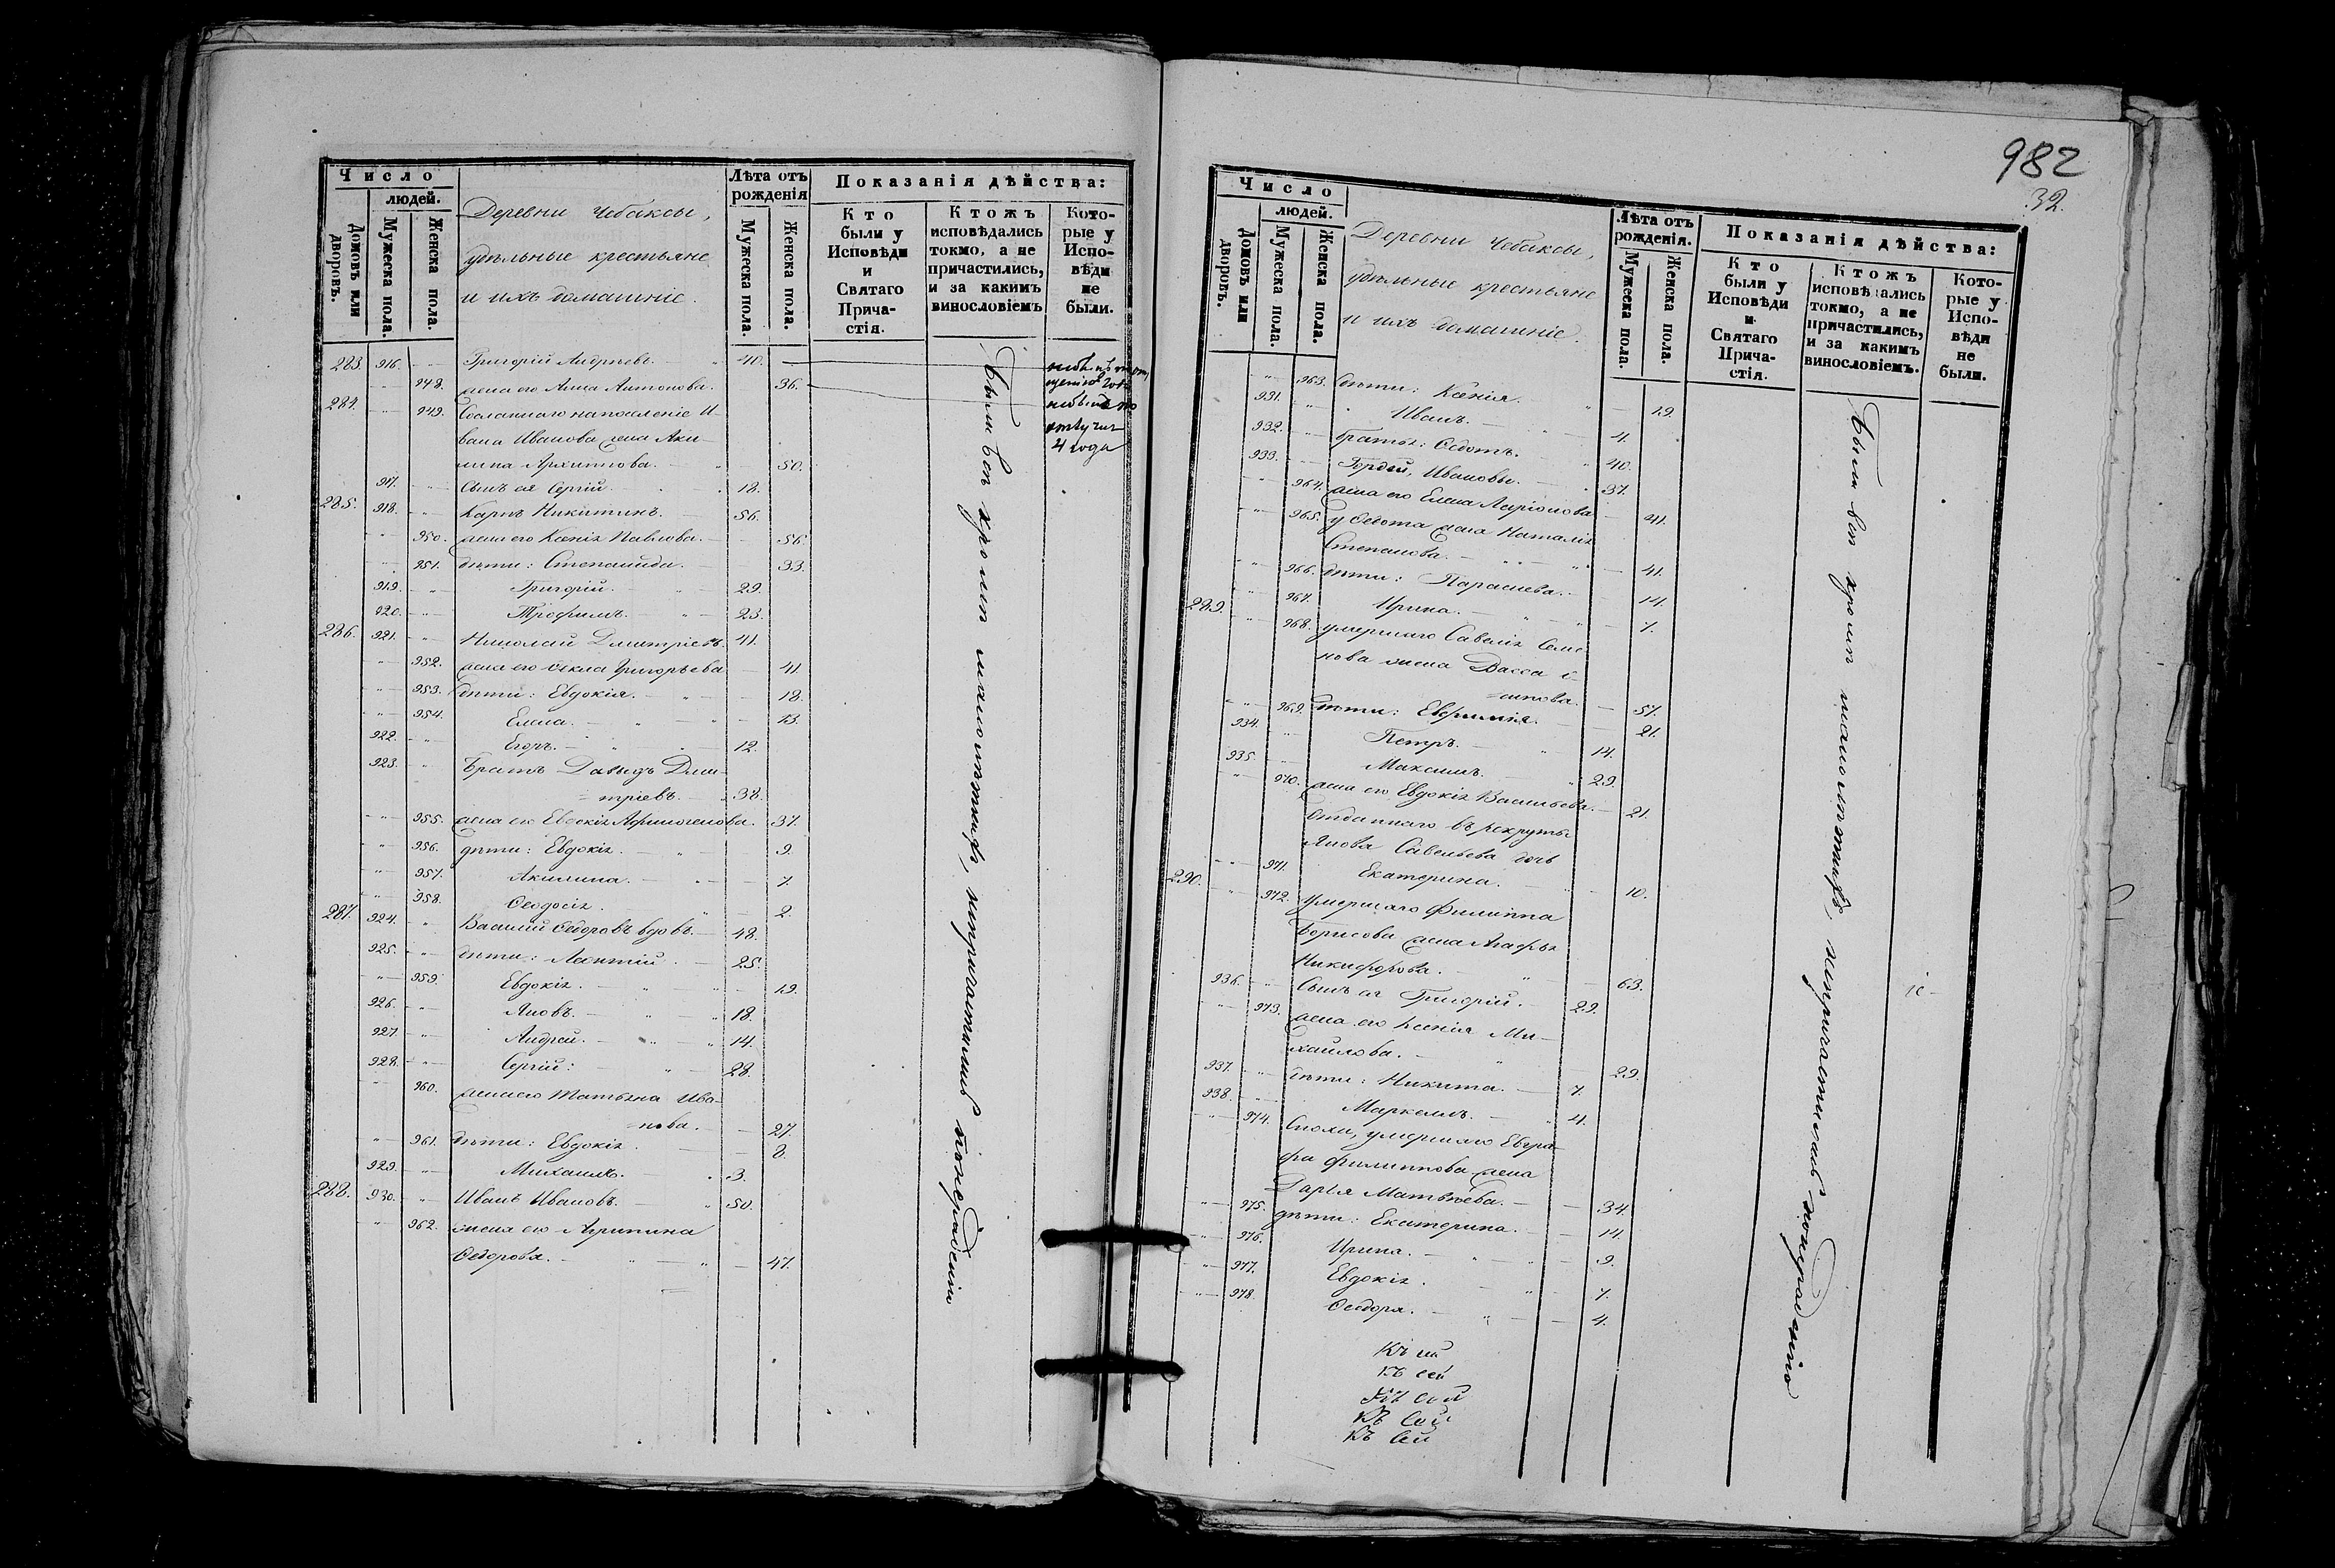 Число
людей.
Домовъ или дворовъ.
Мужеска пола.
Женска пола.
Деревни Чебаксы,
удѣльные крестьяне
и ихъ домашніе.
Лѣта отъ рожденія
Мужеска пола.
Женска пола.
Показанія дѣйства:
Кто были у Исповѣди и Святаго Причастія.
Ктожъ исповѣдались токмо, а не причастились, и за какимъ винословіемъ
Которые у Исповѣди не были.
283. 916. Григорій Андреевъ. 40.
948. жена его Анна Антонова. 36.
284. 949. Сосланнаго на поселеніе И-
вана Иванова жена Аки-
лина Архипова. 50.
917. Сынъ ея Сергій. 18.
285. 918. Карпъ Никитинъ. 56.
950. жена его Ксенія Павлова. 56.
951. дѣти: Степанида. 33.
919. Григорій. 29.
920. Трофимъ. 23.
286. 921. Николай Дмитріевъ. 41.
952. жена его Ѳекла Григорьева 41.
953. дѣти: Евдокія. 18.
954. Елена. 13.
922. Егоръ. 12.
923. Братъ Давыдъ Дми-
тріевъ. 38.
955. жена его Евдокія Афиногенова. 37.
956. дѣти: Евдокія. 9.
957. Акилина. 7.
958. Ѳеодосія. 2.
287. 924. Василій Ѳедоровъ вдовъ. 48.
925. дѣти: Леонтій. 25.
959. Евдокія. 19.
926. Яковъ. 18.
927. Андрей. 14.
928. Сергій: 28.
960. жена его Татьяна Ива-
нова. 27.
961. дѣти: Евдокія. 8.
929. Михаилъ. 3.
288. 930. Иванъ Ивановъ. 50.
962. жена его Агрипина
Ѳедорова. 47.
Были вси кромѣ малолѣтнихъ, непричастились понерадѣнію
не были по
отлучкѣ
4 года
982
32.
Число
людей.
Домовъ или дворовъ.
Мужеска пола.
Женска пола.
Деревни Чебаксы,
удѣльные крестьяне
и ихъ домашніе.
Лѣта отъ рожденія.
Мужеска пола.
Женска пола.
Показанія дѣйства:
Кто были у Исповѣди и Святаго Причастія.
Ктожъ исповѣдались токмо, а не причастились, и за какимъ винословіемъ.
Которые у Исповѣди не были.
963. дѣти: Ксенія. 19.
931. Иванъ. 4.
932. братья: Ѳедотъ. 40.
933. Гордѣй, Ивановы. 37.
964. жена его Елена Ларіонова 41.
965. у Ѳедота жена Наталія
Степанова. 41.
966. дѣти: Парасцева. 14.
967. Ирина. 7.
289. 968. умершаго Савелія Семе-
нова жена Васса
57.
969. дѣти: Евфимія. 21.
934. Петръ. 14.
935. Максимъ. 23.
970. жена его Евдокія Васильева. 21.
Отданнаго въ рекруты
Якова Савельева дочь
971. Екатерина. 10.
290. 972. умершаго Филиппа
Борисова жена Агафья
Никифорова. 63.
936. Сынъ ея Григорій. 29.
973. жена его Ксенія Ми-
хайлова. 29.
937. дѣти: Никита. 7.
938. Маркеллъ. 4.
974. Сноха, умершаго Евгра-
фа Филиппова жена
Дарья Матвѣева. 34.
975. дѣти: Екатерина. 14.
976. Ирина. 9.
977. Евдокія. 7.
978. Ѳеодора. 4.
Были вси кромѣ малолѣтнихъ, непричастились понерадѣнію
Къ сей
Къ сей
Къ сей
Къ сей